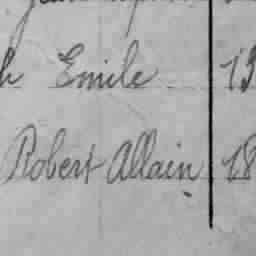 h Emile 13
Robert Allain 18